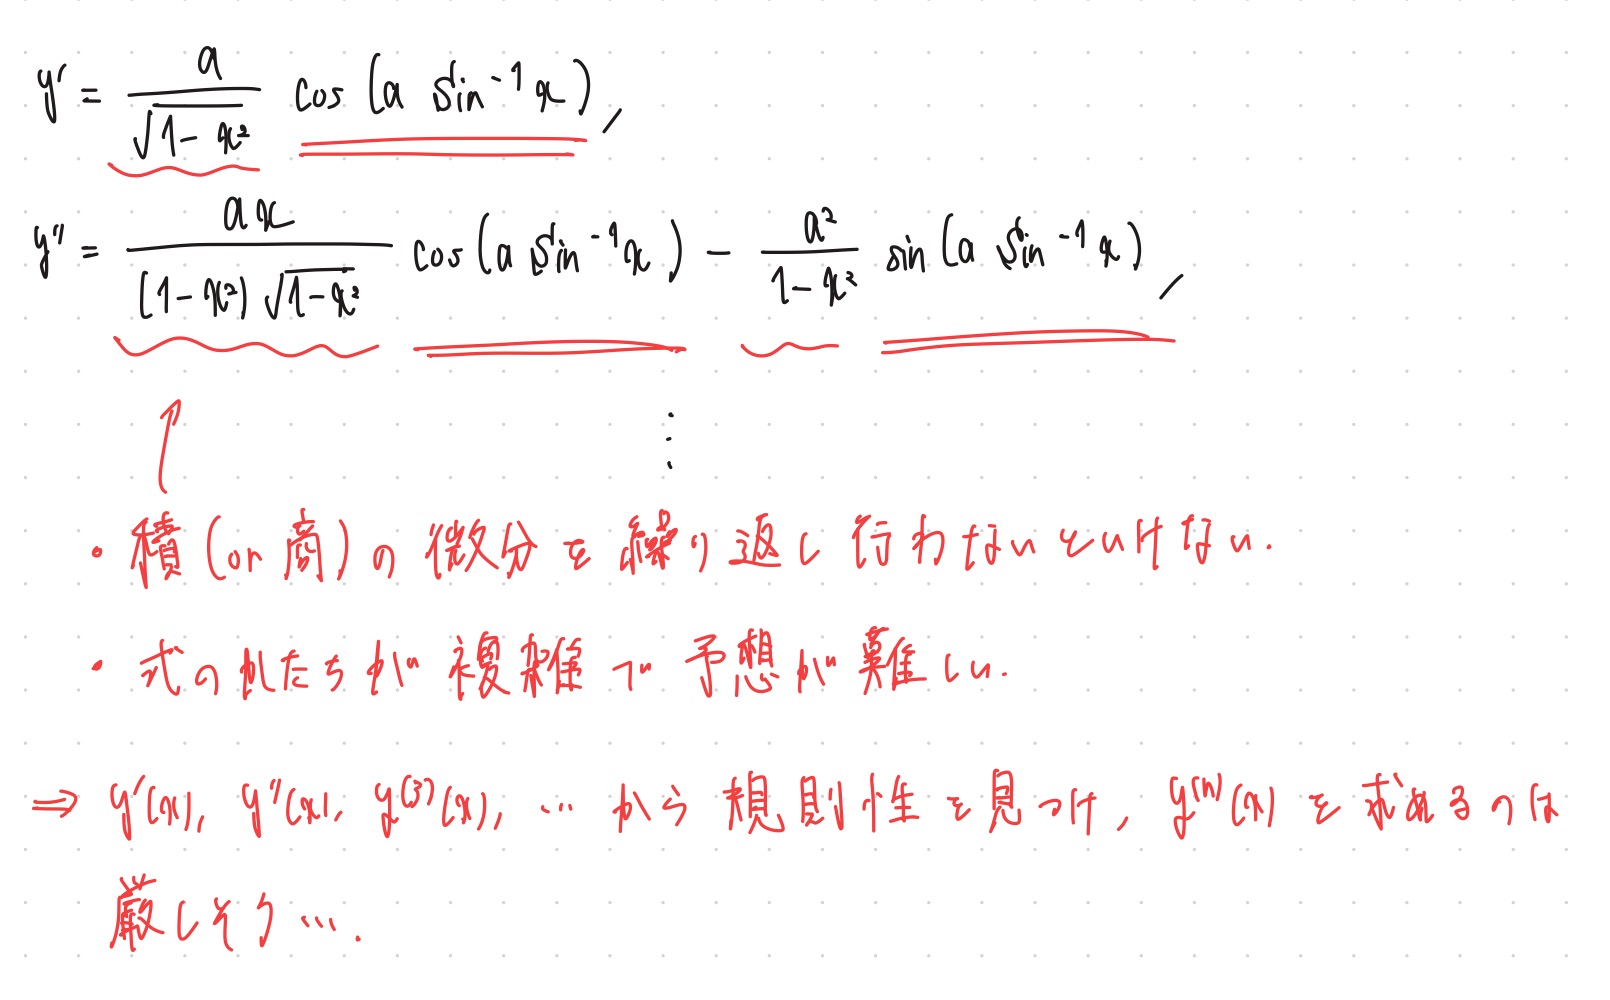 y' = a/√(1-x²) cos(a Sin⁻¹x),
y'' = ax/((1-x²)√(1-x²)) cos(a Sin⁻¹x) - a²/(1-x²) sin(a Sin⁻¹x),
⋮
・積(or商)の微分を繰り返し行わないといけない.
・式のかたちが複雑で予想が難しい.
⇒ y'(x), y''(x), y⁽³⁾(x), … から規則性を見つけ, y⁽ⁿ⁾(x) を求めるのは
厳しそう….